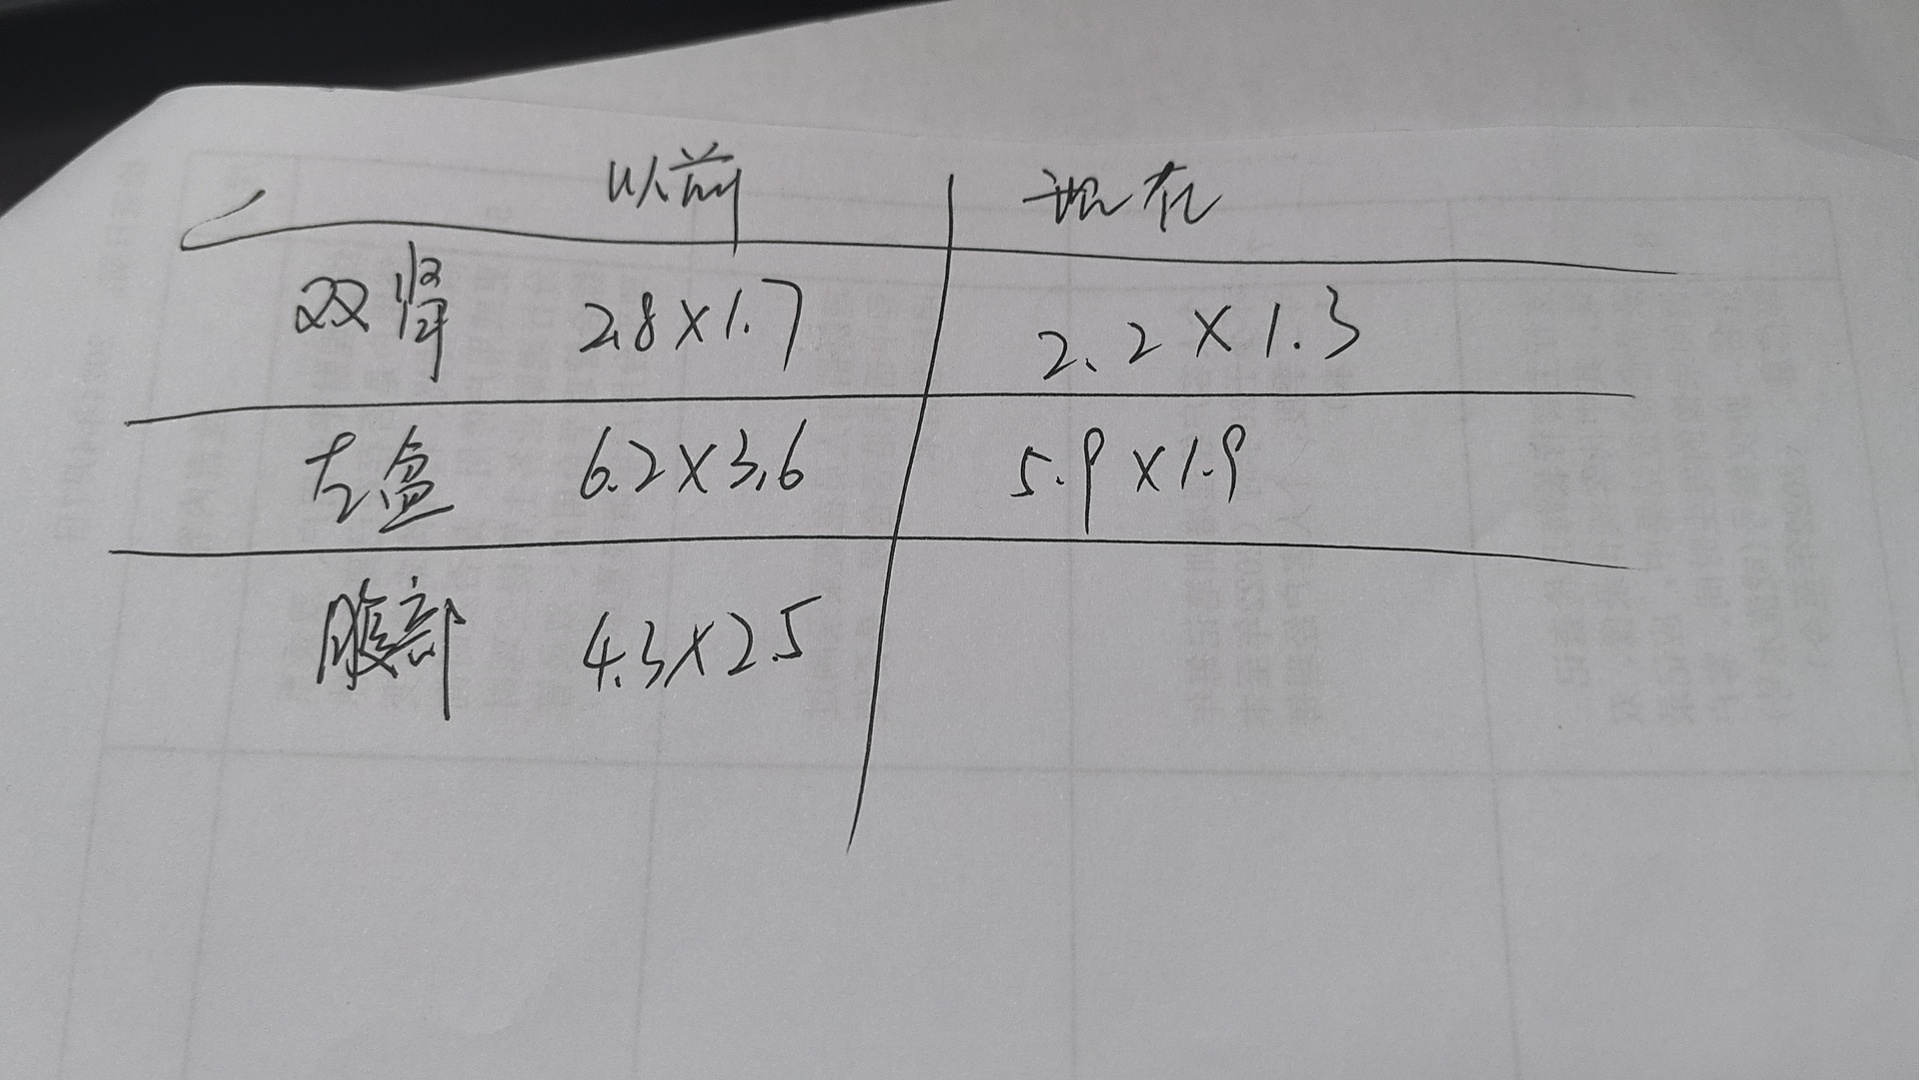 以前 现在
双肾 2.8×1.7 2.2×1.3
左盒 6.2×3.6 5.9×1.9
腹部 4.3×2.5